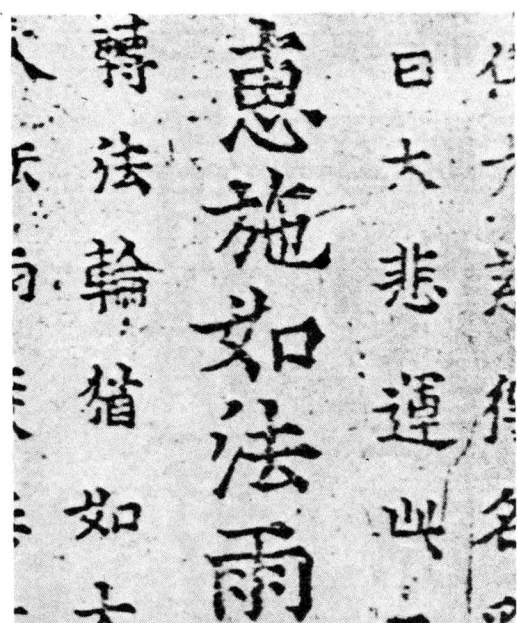 得名
曰大悲運此
惠施如法雨
轉法輪猶如大